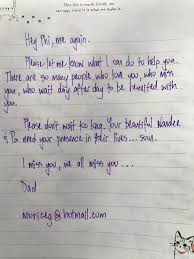 Hey Phi, me again.
Please let me know what I can do to help you.
There are so many people who love you, who miss
you, who wait day after day to be reunited with
you.
Please don't wait too long. Your beautiful
& Pa need your presence in their lives... soon.
I miss you, we all miss you...
Dad
moriceg@hotmail.com